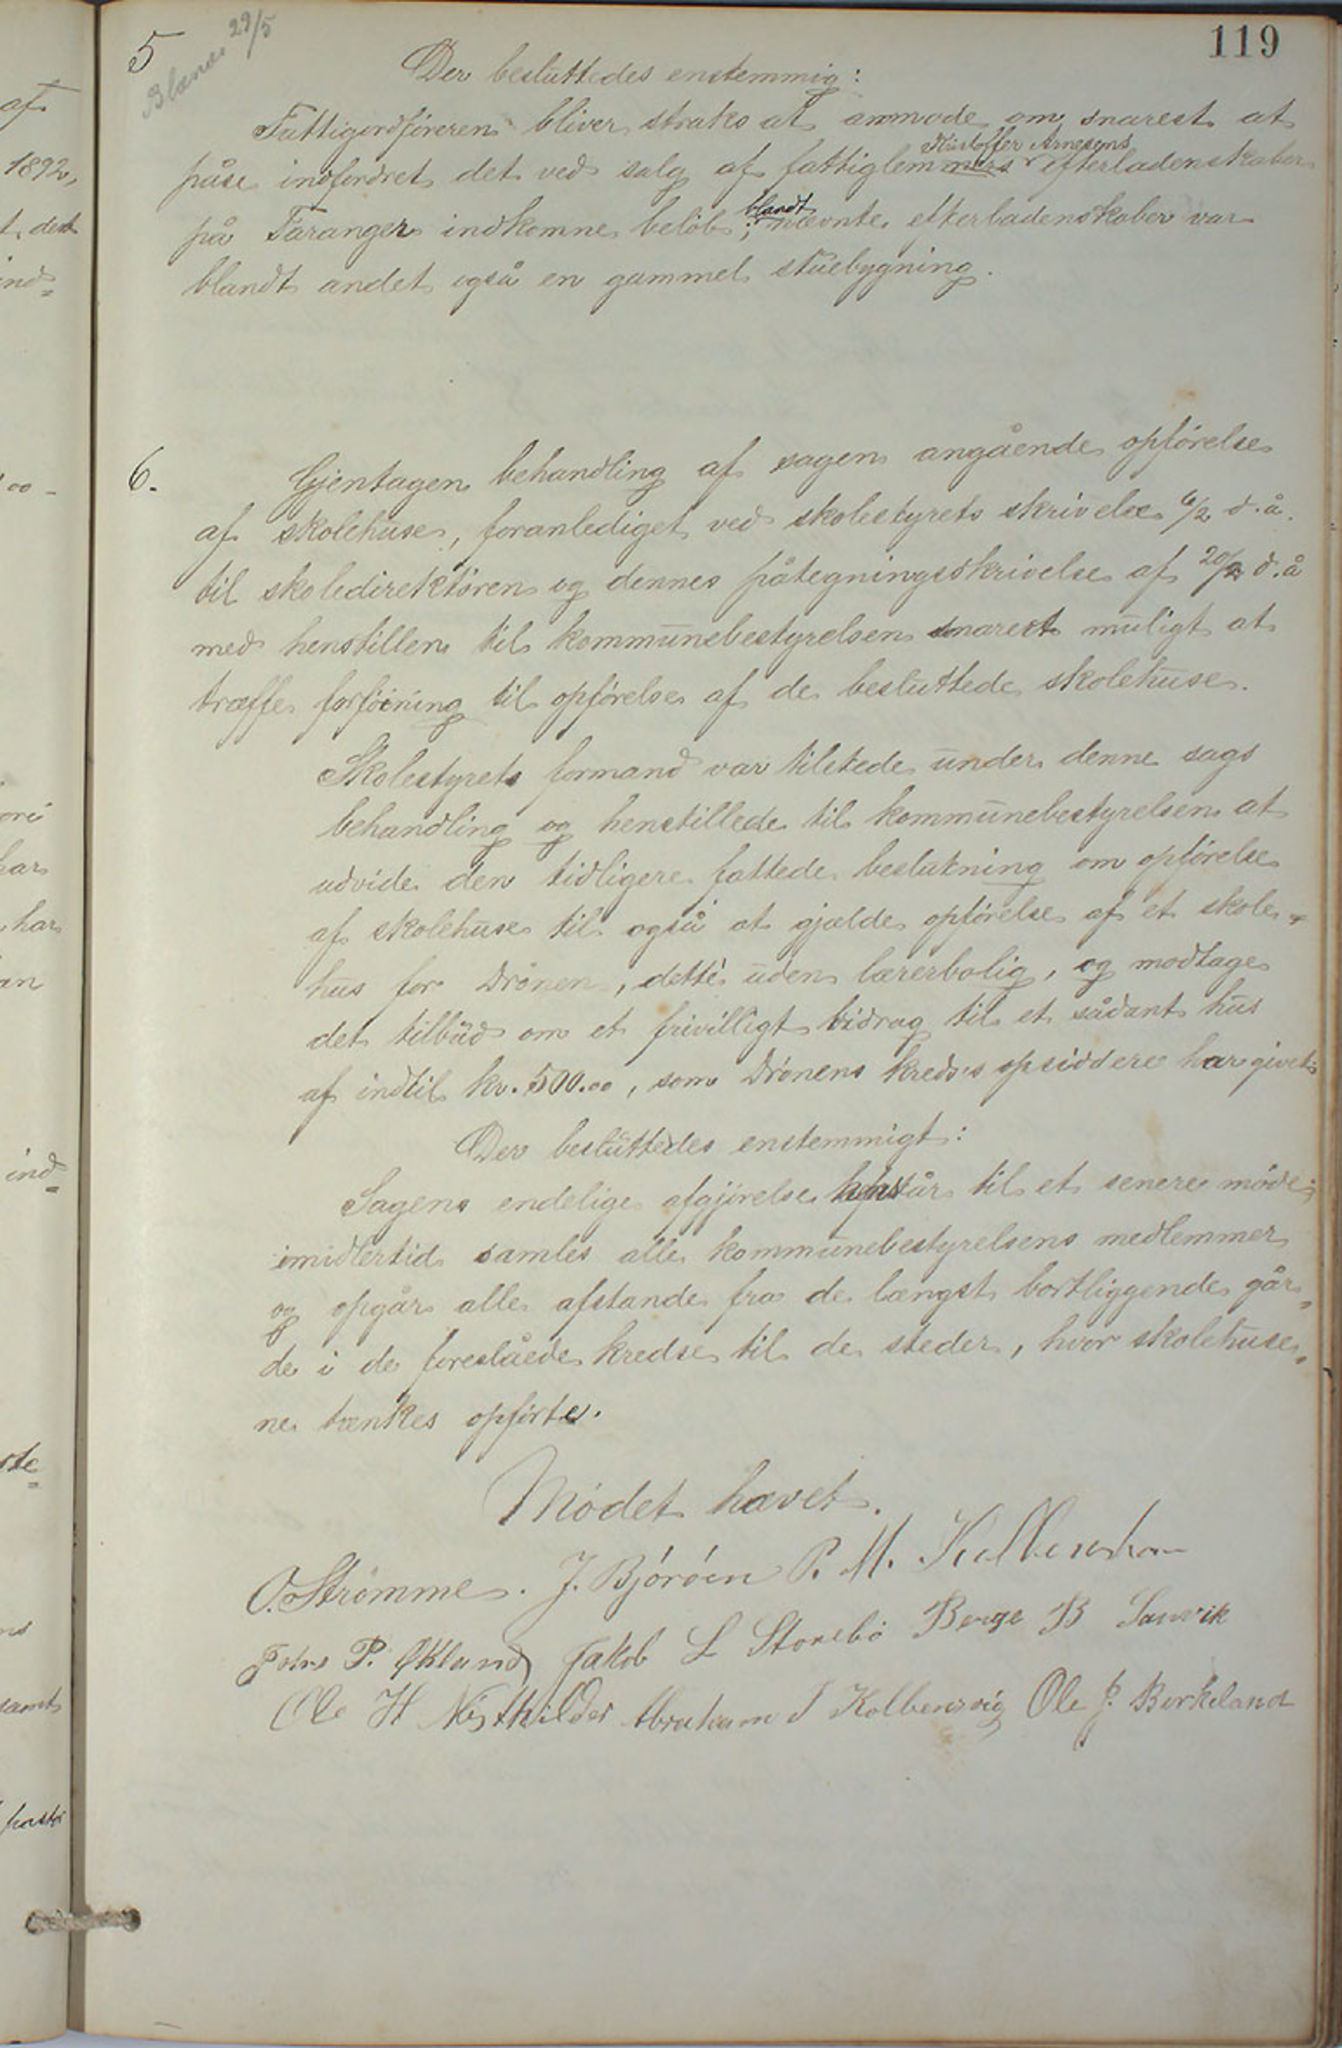 119
5
Blanc. 29/5
Der besluttedes enstemmig:
Fattigordføreren bliver straks at anmode om snarest at
Kristoffer Arnesens
påse indfordret det ved salg af fattiglemmers efterladenskaber
blandt
på Faranger indkomne beløb; nævnte efterladenskaber var
blandt andet også en gammel stuebygning.
6.
Gjentagen behandling af sagen angående opførelse
af skolehuse, foranlediget ved skolestyrets skrivelse 6/2 d.å.
til skoledirektøren og dennes påtegningsskrivelse af 20/2 d.å
med henstillen til kommunebestyrelsen snarest muligt at
træffe forføining til opførelse af de besluttede skolehuse.
Skolestyrets formand var tilstede under denne sags
behandling og henstillede til kommunebestyrelsen at
udvide den tidligere fattede beslutning om opførelse
af skolehuse til også at gjælde opførelse af et skole-
hus for Drønen, dette uden lærerbolig, og modtage
det tilbud om et frivilligt bidrag til et sådant hus
af indtil kr. 500.00, som Drønens kreds's opsiddere har givet.
Der besluttedes enstemmigt:
Sagens endelige afgjørelse henstår til et senere møde;
imidlertid samles alle kommunebestyrelsens medlemmer
og opgår alle afstande fra de længst bortliggende går-
de i de foreslåede kredse til de steder, hvor skolehuse-
ne tænkes opførte.
Mødet hævet.
O. Strømme. J. Bjørøen P. M. Kolbenshavn
Johs P. Økland Jakob L Storebø Berge B Sanvik
Ole H Møgsthildes Abraham J Kolbensvig Ole J. Birkeland
af
1892,
t det
ind-
00 -
har
har
an
ind-
samt